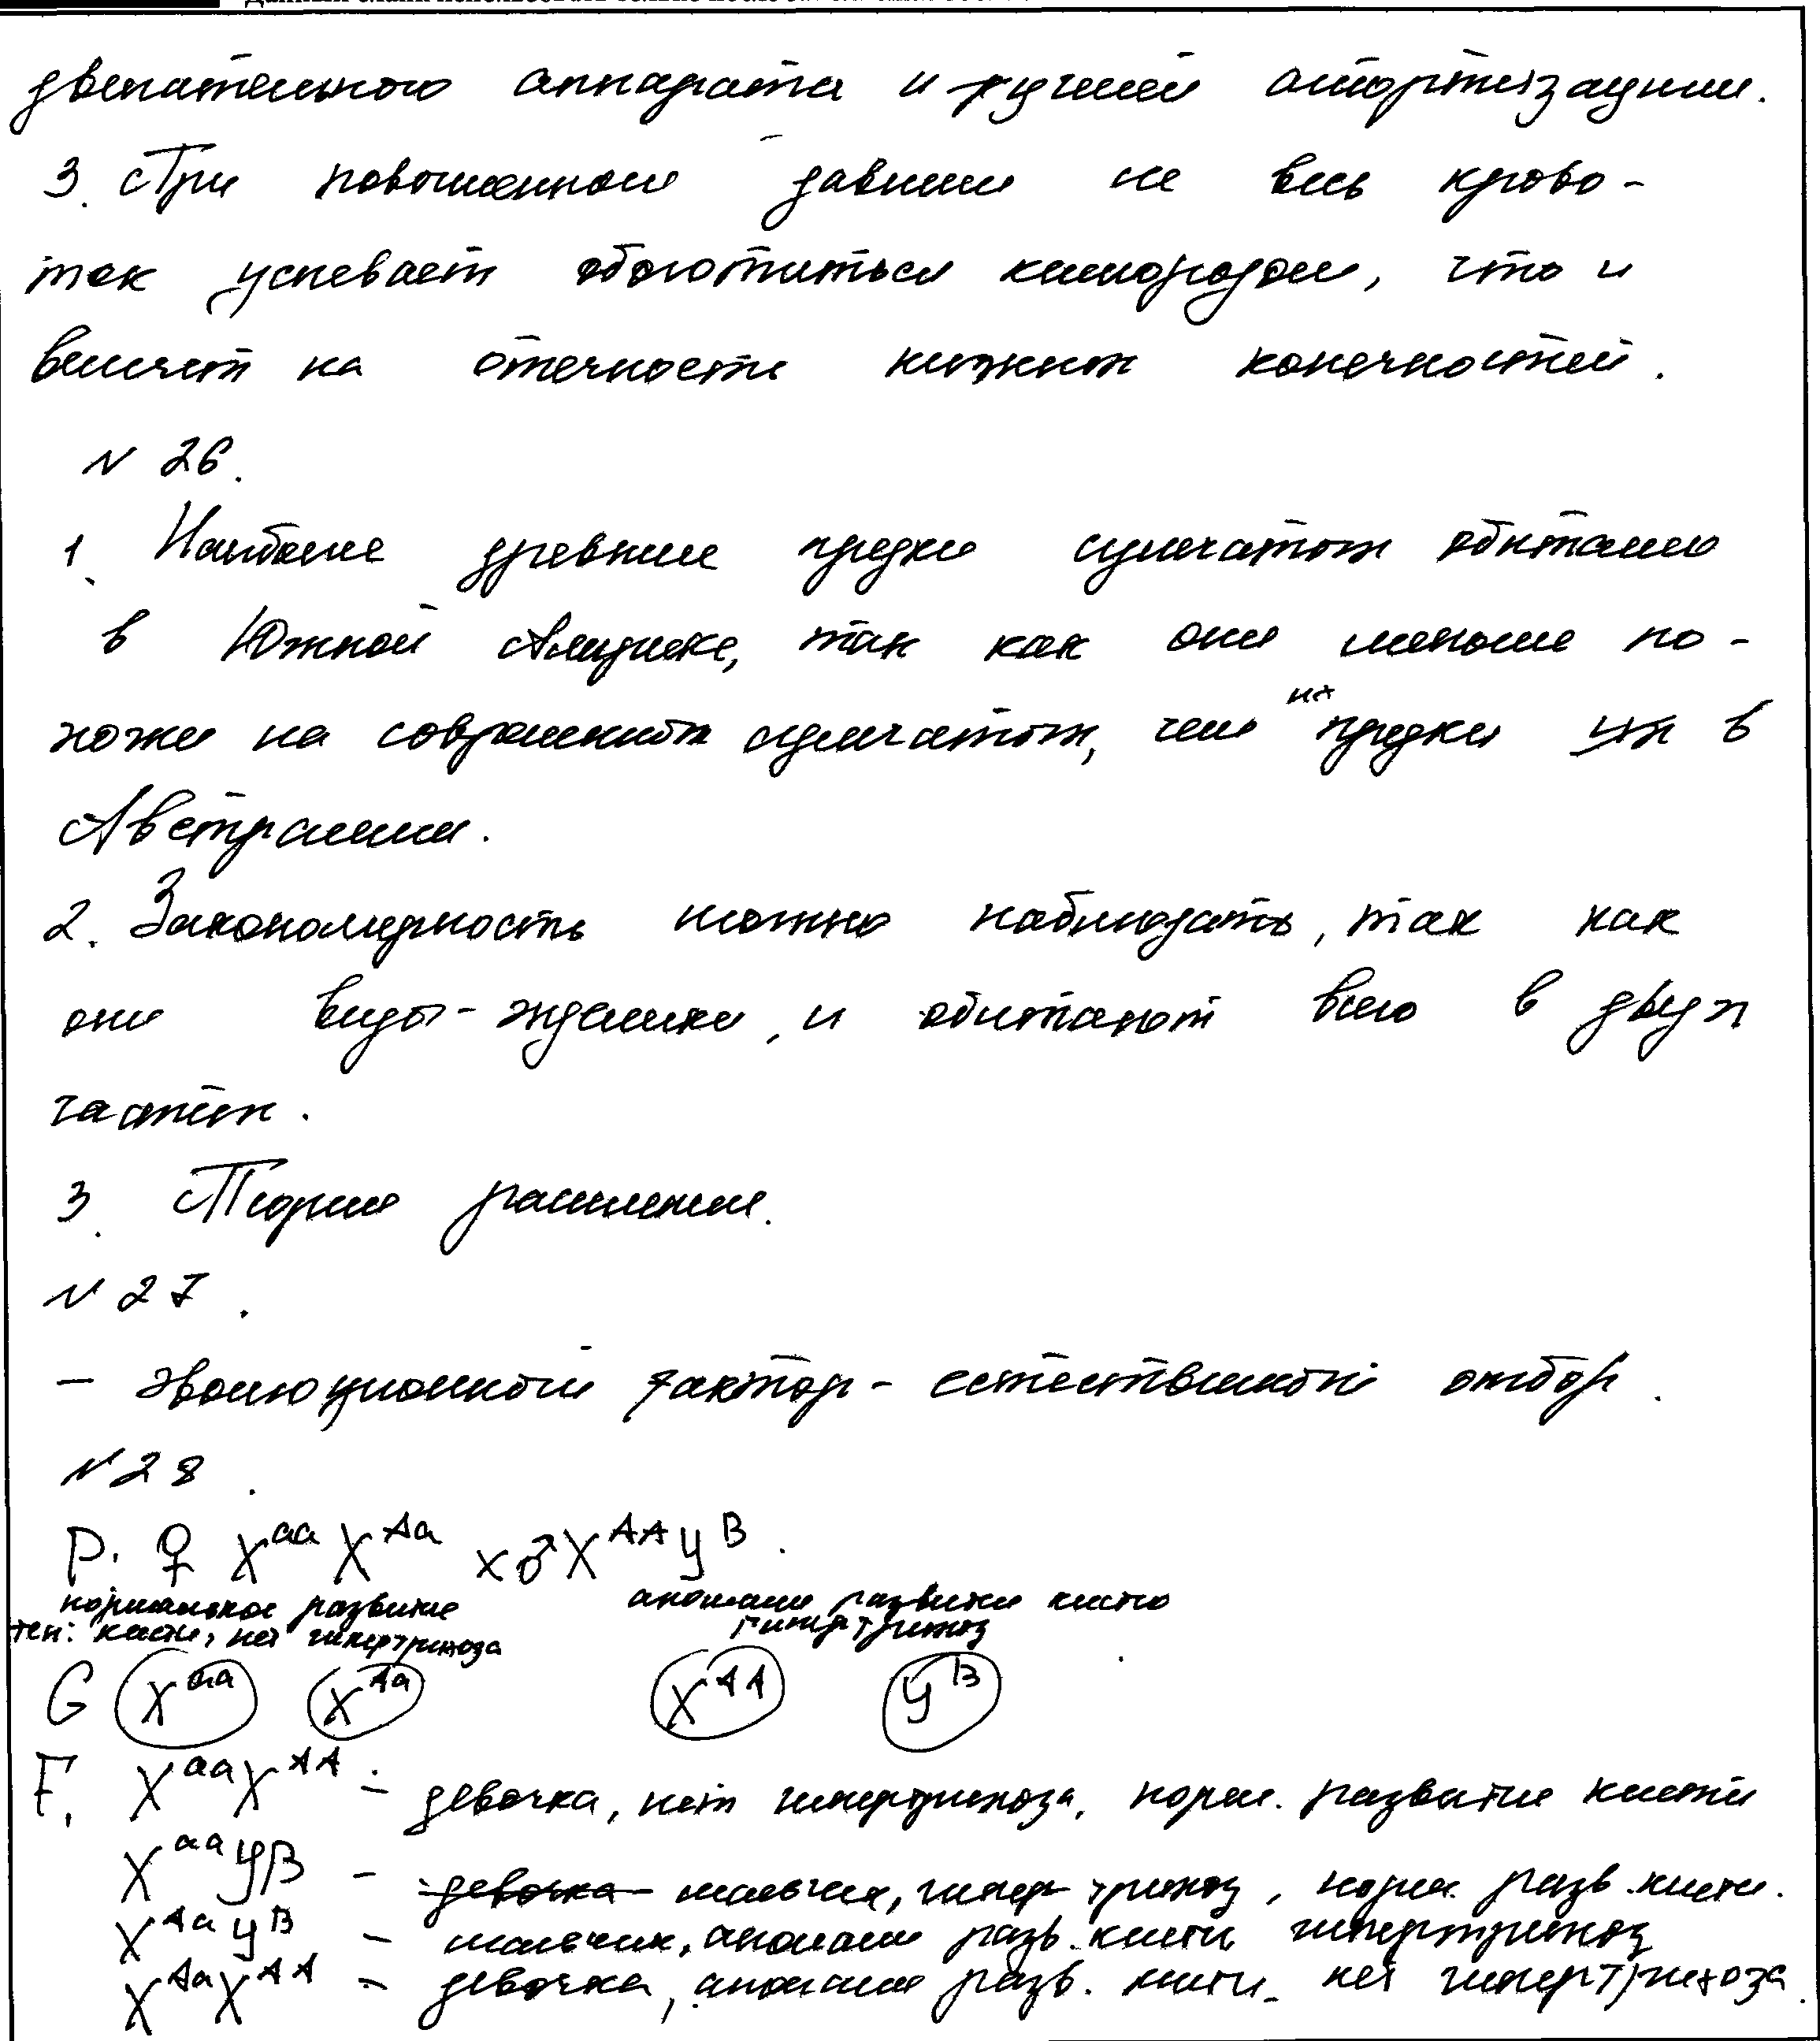 двигательного аппарата и лучшей амортизации.
3. При повышенном давлении не весь крово-
ток успевает обогатиться кислородом, что и
влияет на отечность нижних конечностей.
N 26.
1. Наиболее древние предки сумчатых обитали
в Южной Америке, так как они меньше по-
хожи на современных сумчатых, чем их предки в
Австралии.
2. Закономерность можно наблюдать, так как
они виды-эндемики, и обитают всего в двух
частях.
3. Теория
N 27.
- эволюционный фактор - естественный отбор.
N 28.
P. ♀ X^aa X^Aa x ♂ X^AA y^B.
нормальное развитие аномалия развития кисти
ген: кисти, нет гипертрихоза гипертрихоз
G X^aa X^Aa X^AA y^B
F1 X^aa X^AA - девочка, нет гипертрихоза, норм. развитие кисти
X^aa yB - девочка мальчик, гипертрихоз, норм. разв. кисти.
X^Aa y^B - мальчик, аномалия разв. кисти, гипертрихоз
X^Aa X^AA - девочка, аномалия разв. кисти, нет гипертрихоза.